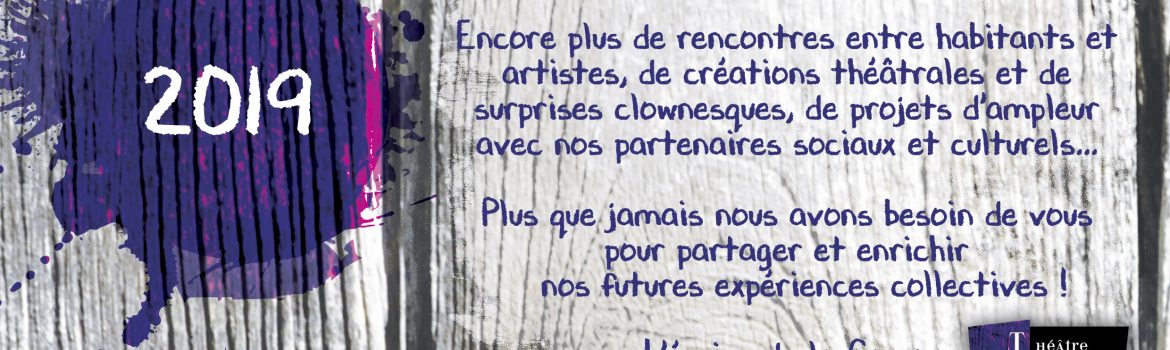 2019
Encore plus de rencontres entre habitants et
artistes, de créations théâtrales et de
surprises clownesques, de projets d'ampleur
avec nos partenaires sociaux et culturels...
Plus que jamais nous avons besoin de vous
pour partager et enrichir
nos futures expériences collectives !
Théâtre